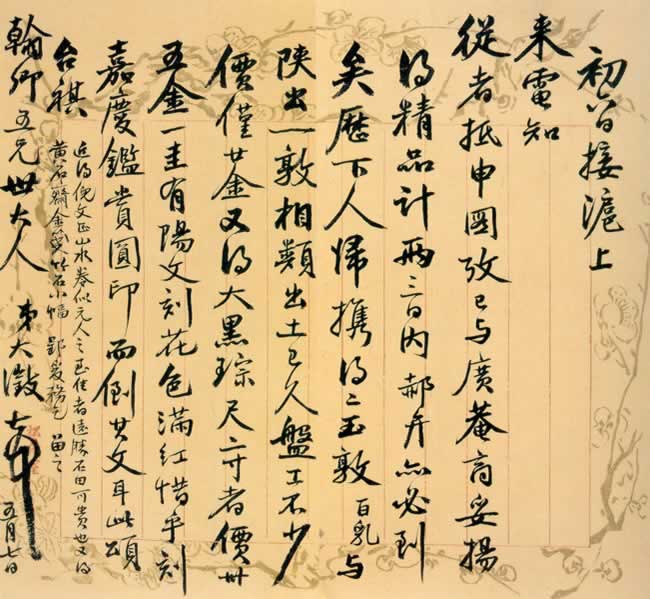 初日接滬上
来電知
從者抵申國攷已与廣菴商妥揚
得精品計兩三日内郝弁亦必到
矣歷下人歸攜得二玉敦百乳与
陝出一敦相類出土已久盤工不少
價僅廿金又得大黑琮尺二寸者價卅
五金一圭有陽文刻花色滿紅惜乎刻
嘉慶鑑賞圓印而倒其文耳此頌
台祺
近得倪文正山水卷似元人之至佳者遠勝石田可貴也又得
黃石齋金箋竹石小幅
翰卿五兄世大人 弟大澂 五月七日